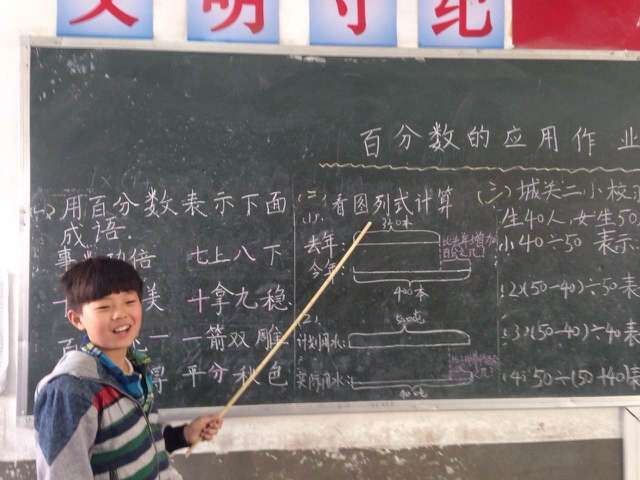 文明守纪
百分数的应用作业
(一)用百分数表示下面
成语.
事 倍 七上八下
十 美 十拿九稳
百 一 一箭双雕
得 平分秋色
(二)看图列式计算
(1).
350本
去年:
今年:
比去年增加
百分之几?
400本
(2)
500吨
计划用水:
实际用水:
90吨
(三)城关二小校
生40人,女生50
(1)40÷50 表示
(2)(50-40)÷50表
(3)(50-40)÷40表
(4)50÷(50+40)表